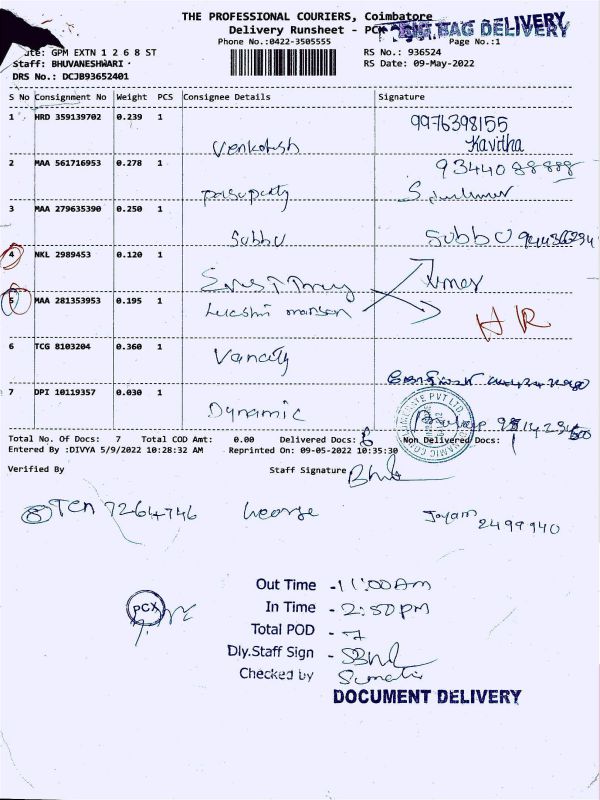 THE PROFESSIONAL COURIERS, Coimbatore
Delivery Runsheet - PCX BIG BAG DELIVERY
Phone No.:0422-3505555 Page No.:1
GPM EXTN 1 2 6 8 ST RS No.: 936524
Staff: BHUVANESHWARI RS Date: 09-May-2022
DRS No.: DCJB93652401
S No Consignment No Weight PCS Consignee Details Signature
1 HRD 359139702 0.239 1 9976398155
Venkatesh Kavitha
2 MAA 561716953 0.278 1
3 MAA 279635390 0.250 1
Subbu Subbu
4 NKL 2989453 0.120 1
5 MAA 281353953 0.195 1 HR
6 TCG 8103204 0.360 1
7 DPI 10119357 0.030 1
Dynamic
Total No. Of Docs: 7 Total COD Amt: 0.00 Delivered Docs: 6 Non Delivered Docs: 1
Entered By :DIVYA 5/9/2022 10:28:32 AM Reprinted On: 09-05-2022 10:35:30
Verified By Staff Signature
8 TCN 7264746 George Jayam
2499940
PCX
Out Time - 11:00 Am
In Time - 2:50 PM
Total POD - 7
Dly.Staff Sign -
Checked by -
DOCUMENT DELIVERY